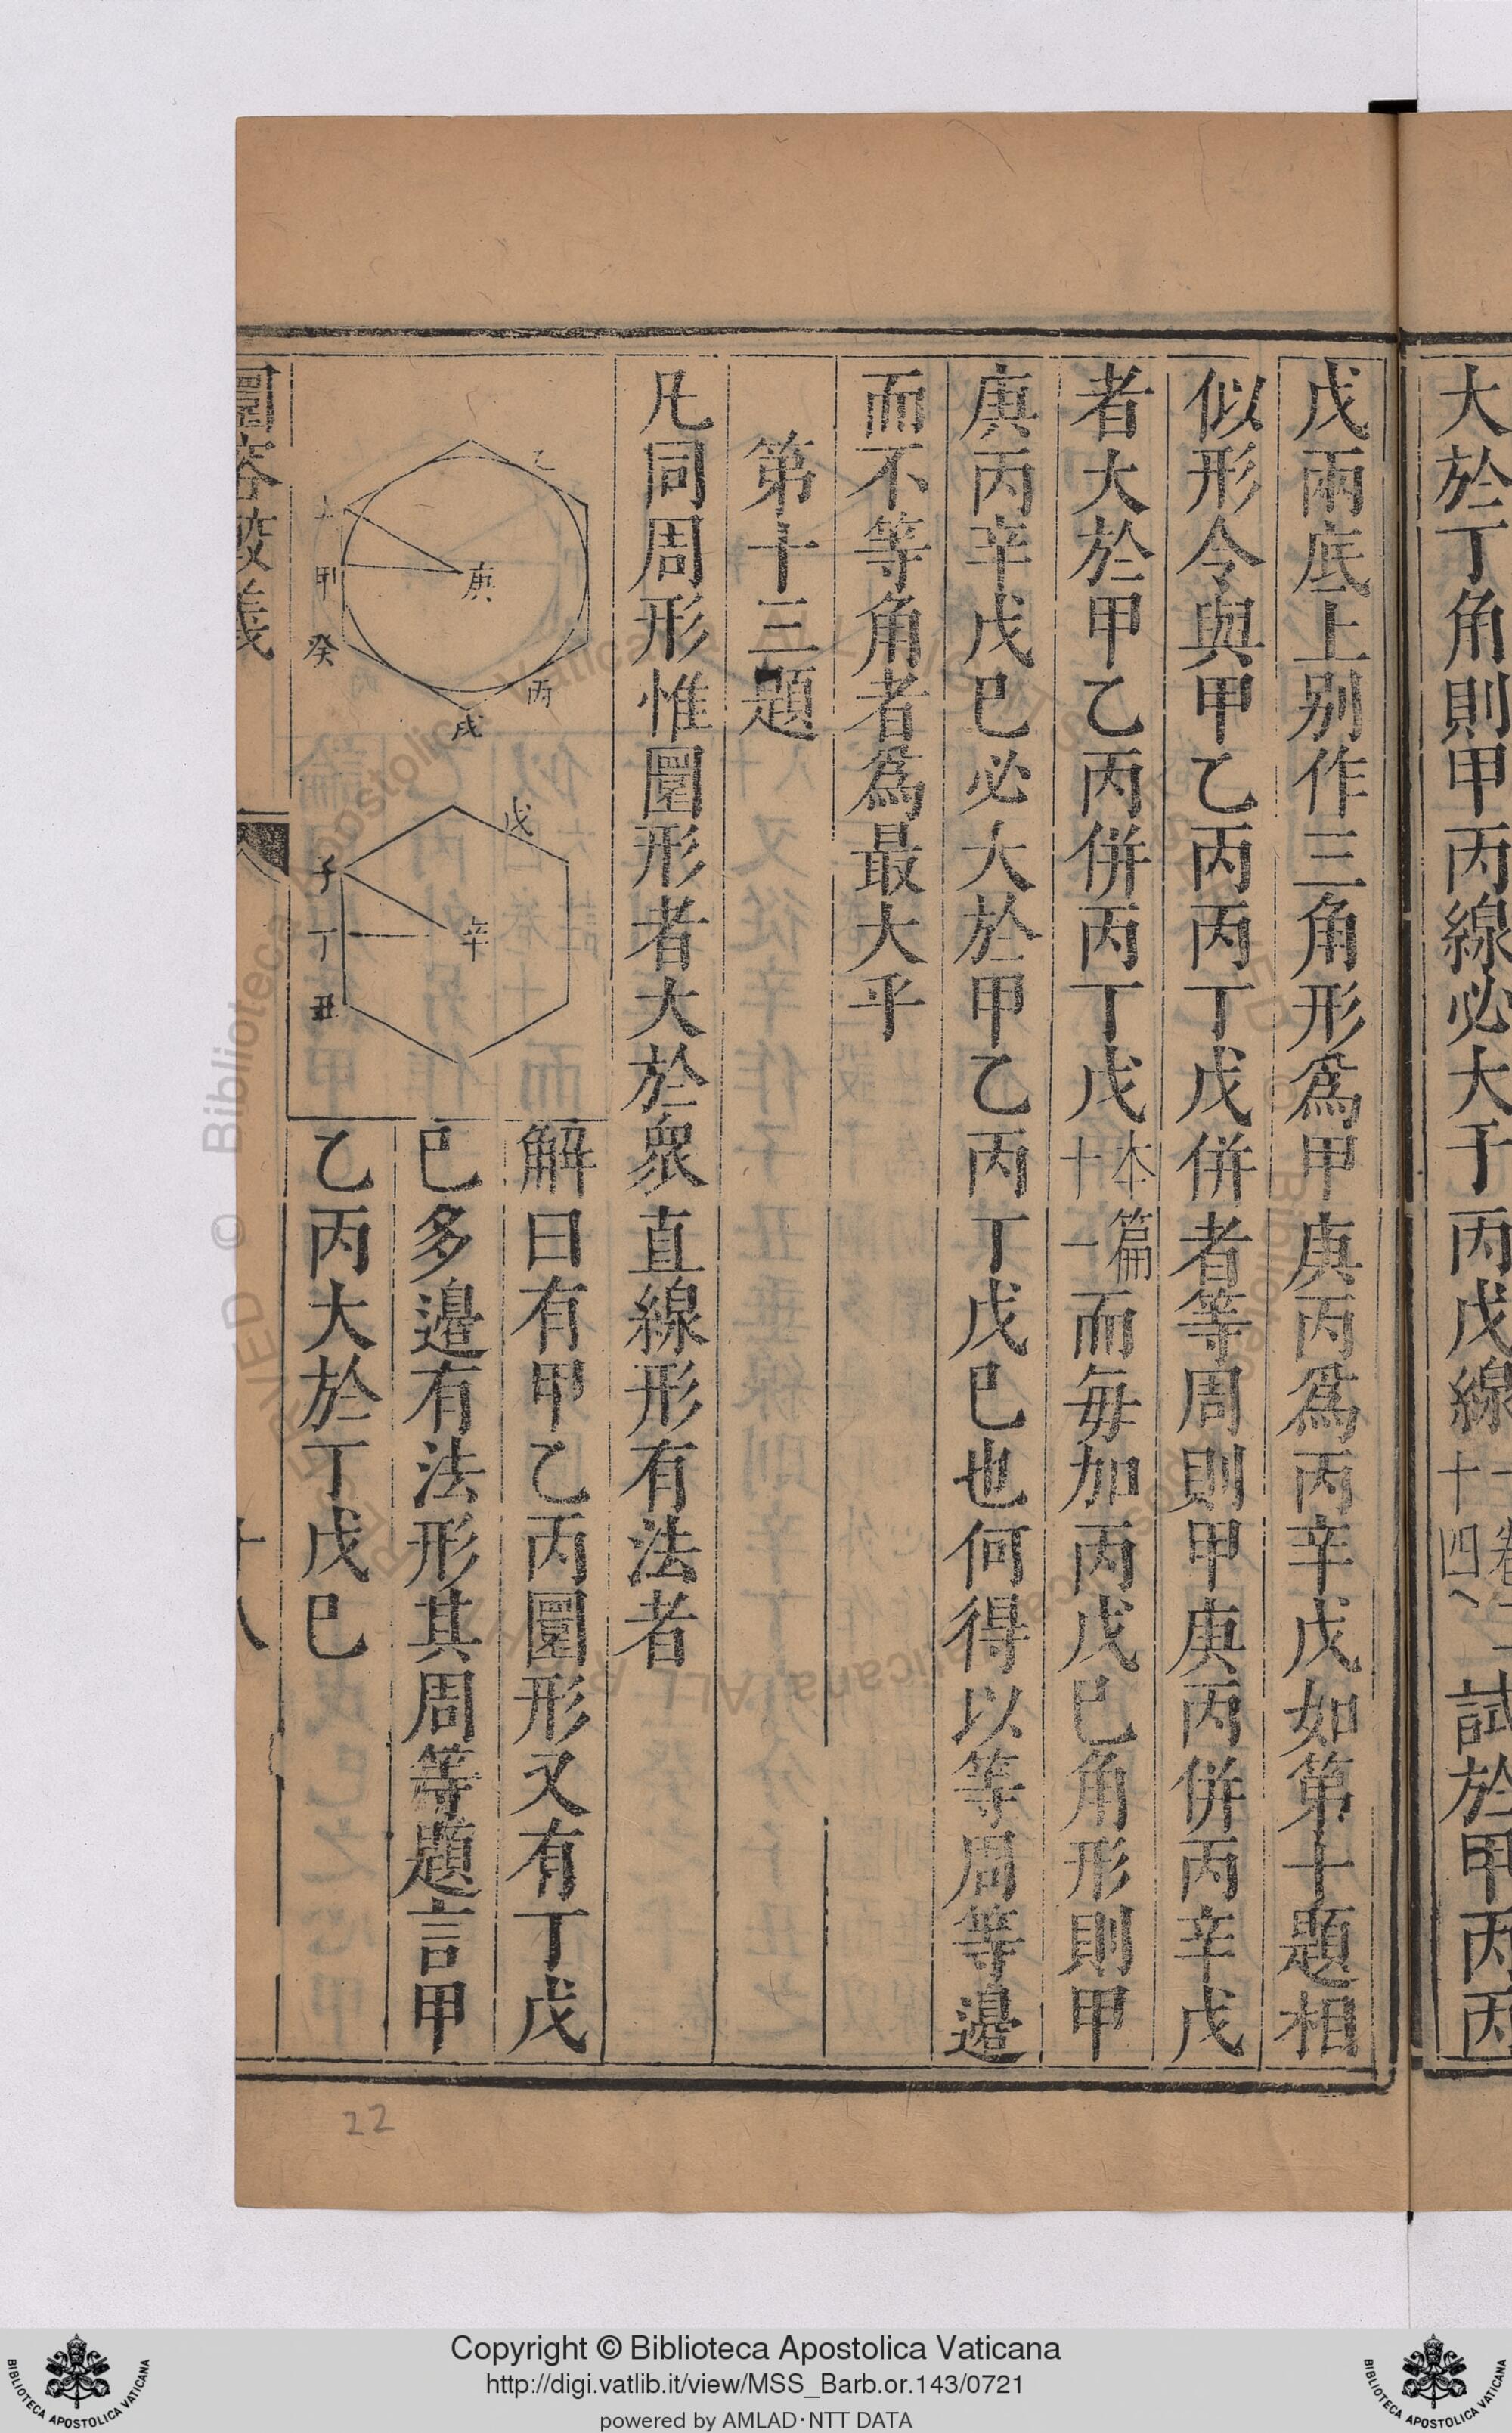 大於丁角則甲丙線必大于丙戊線一卷二十四試於甲丙丙
戊兩底上別作三角形爲甲庚丙爲丙辛戊如第十題相
似形令與甲乙丙丙丁戊併者等周則甲庚丙併丙辛戊
者大於甲乙丙併丙丁戊本篇十一而每加丙戊巳角形則甲
庚丙辛戊巳必大於甲乙丙丁戊巳也何得以等周等邊
而不等角者爲最大乎
第十三題
凡同周形惟圜形者大於衆直線形有法者
解曰有甲乙丙圜形又有丁戊
巳多邊有法形其周等題言甲
乙丙大於丁戊巳
乙
庚
甲
癸
丙
戌
戊
子
丁
辛
丑
圜容較義
十八
22
Copyright © Biblioteca Apostolica Vaticana
http://digi.vatlib.it/view/MSS_Barb.or.143/0721
powered by AMLAD·NTT DATA
BIBLIOTECA APOSTOLICA VATICANA
BIBLIOTECA APOSTOLICA VATICANA